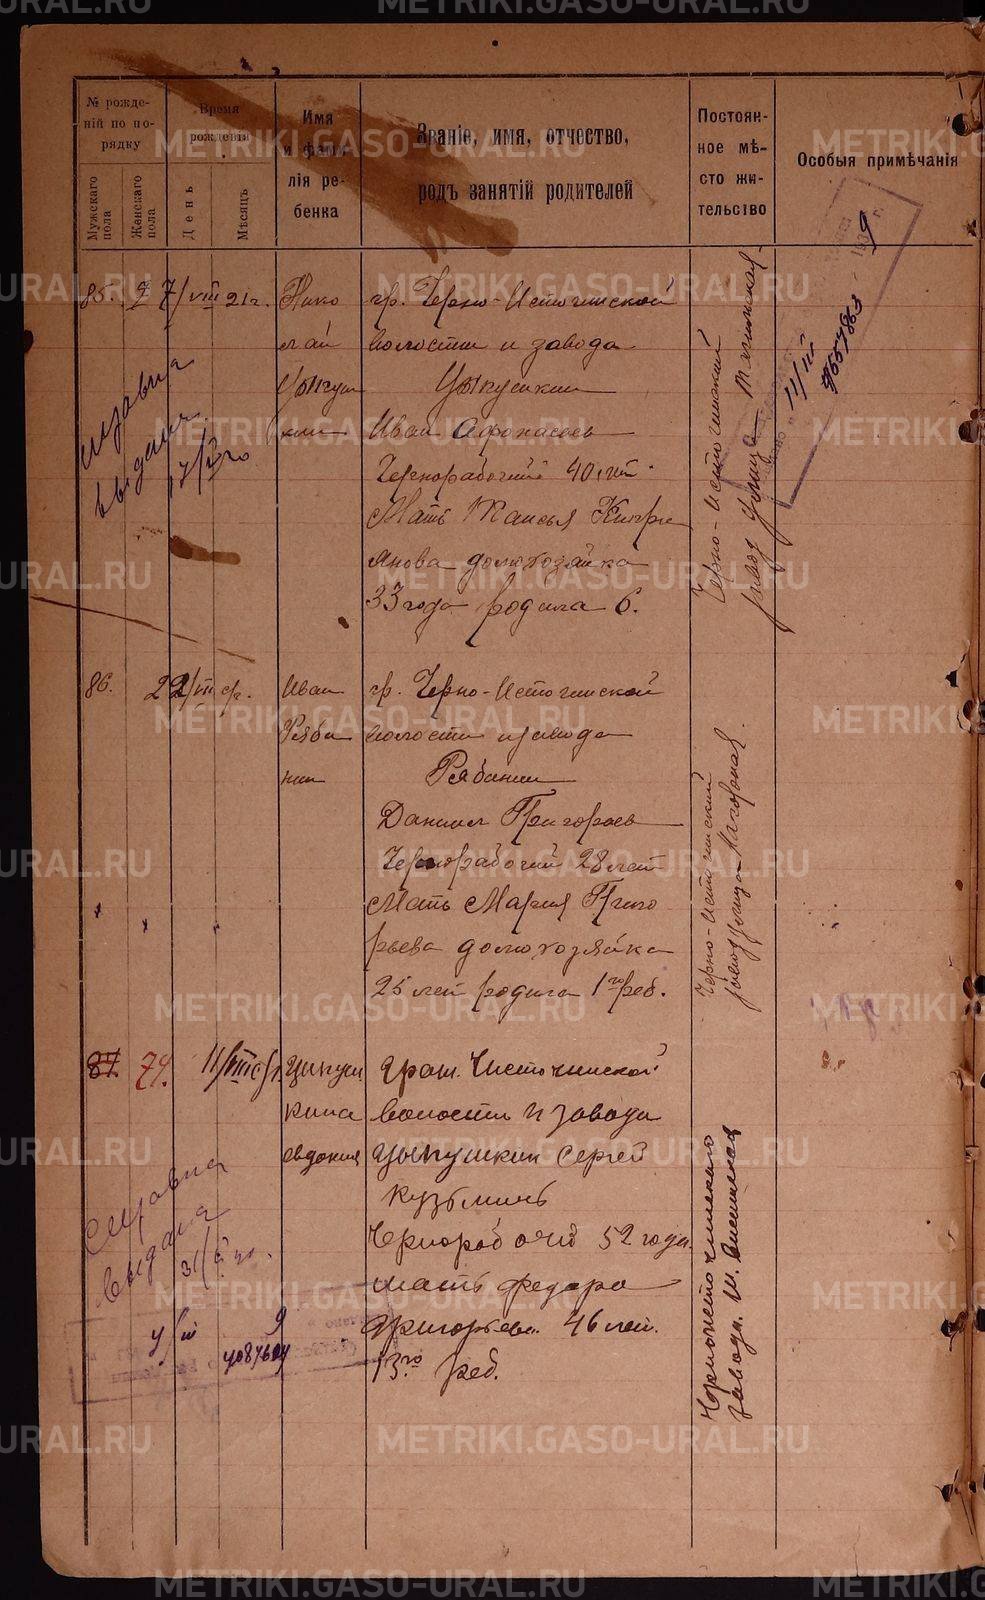 № рожде-
ній по по-
рядку
Мужскаго
пола
Женскаго
пола
Время
рожденія
День
Мѣсяцъ
Имя
и фами-
лія ре-
бенка
Званіе, имя, отчество,
родъ занятій родителей
Постоян-
ное мѣ-
сто жи-
тельство
Особыя примѣчанія
85. 7/VIII 21 г.
Нико
лай
гр. Черно-Источинской
волости и завода
Иван Афонасьев
Чернорабочий 40 лет
Мать Таисья Кипри
янова домохозяйка
33 года родила 6.
Черно-Источинский
завод улица
выдана
11/III
9
86. 22/VIII с/г.
Иван
Ряба
нин
гр. Черно-Источинской
волости и завода
Рябанин
Даниил Григорьев
Чернорабочий 28 лет
Мать Мария Григо
рьева домохозяйка
25 лет родила 1го реб.
Черно-Источинский
завод улица Нагорная
87. 74. 11/VIII с/г.
Цыпуш
кина
евдокия
Граж. Ч источинской
волости и завода
Цыпушкин Сергей
Кузьминъ
Чернораб очий 52 года.
мать федора
Григорьева. 46 лет.
13го реб.
Черноисточинского
завода.
Справка
выдана
4/III
9
METRIKI.GASO-URAL.RU